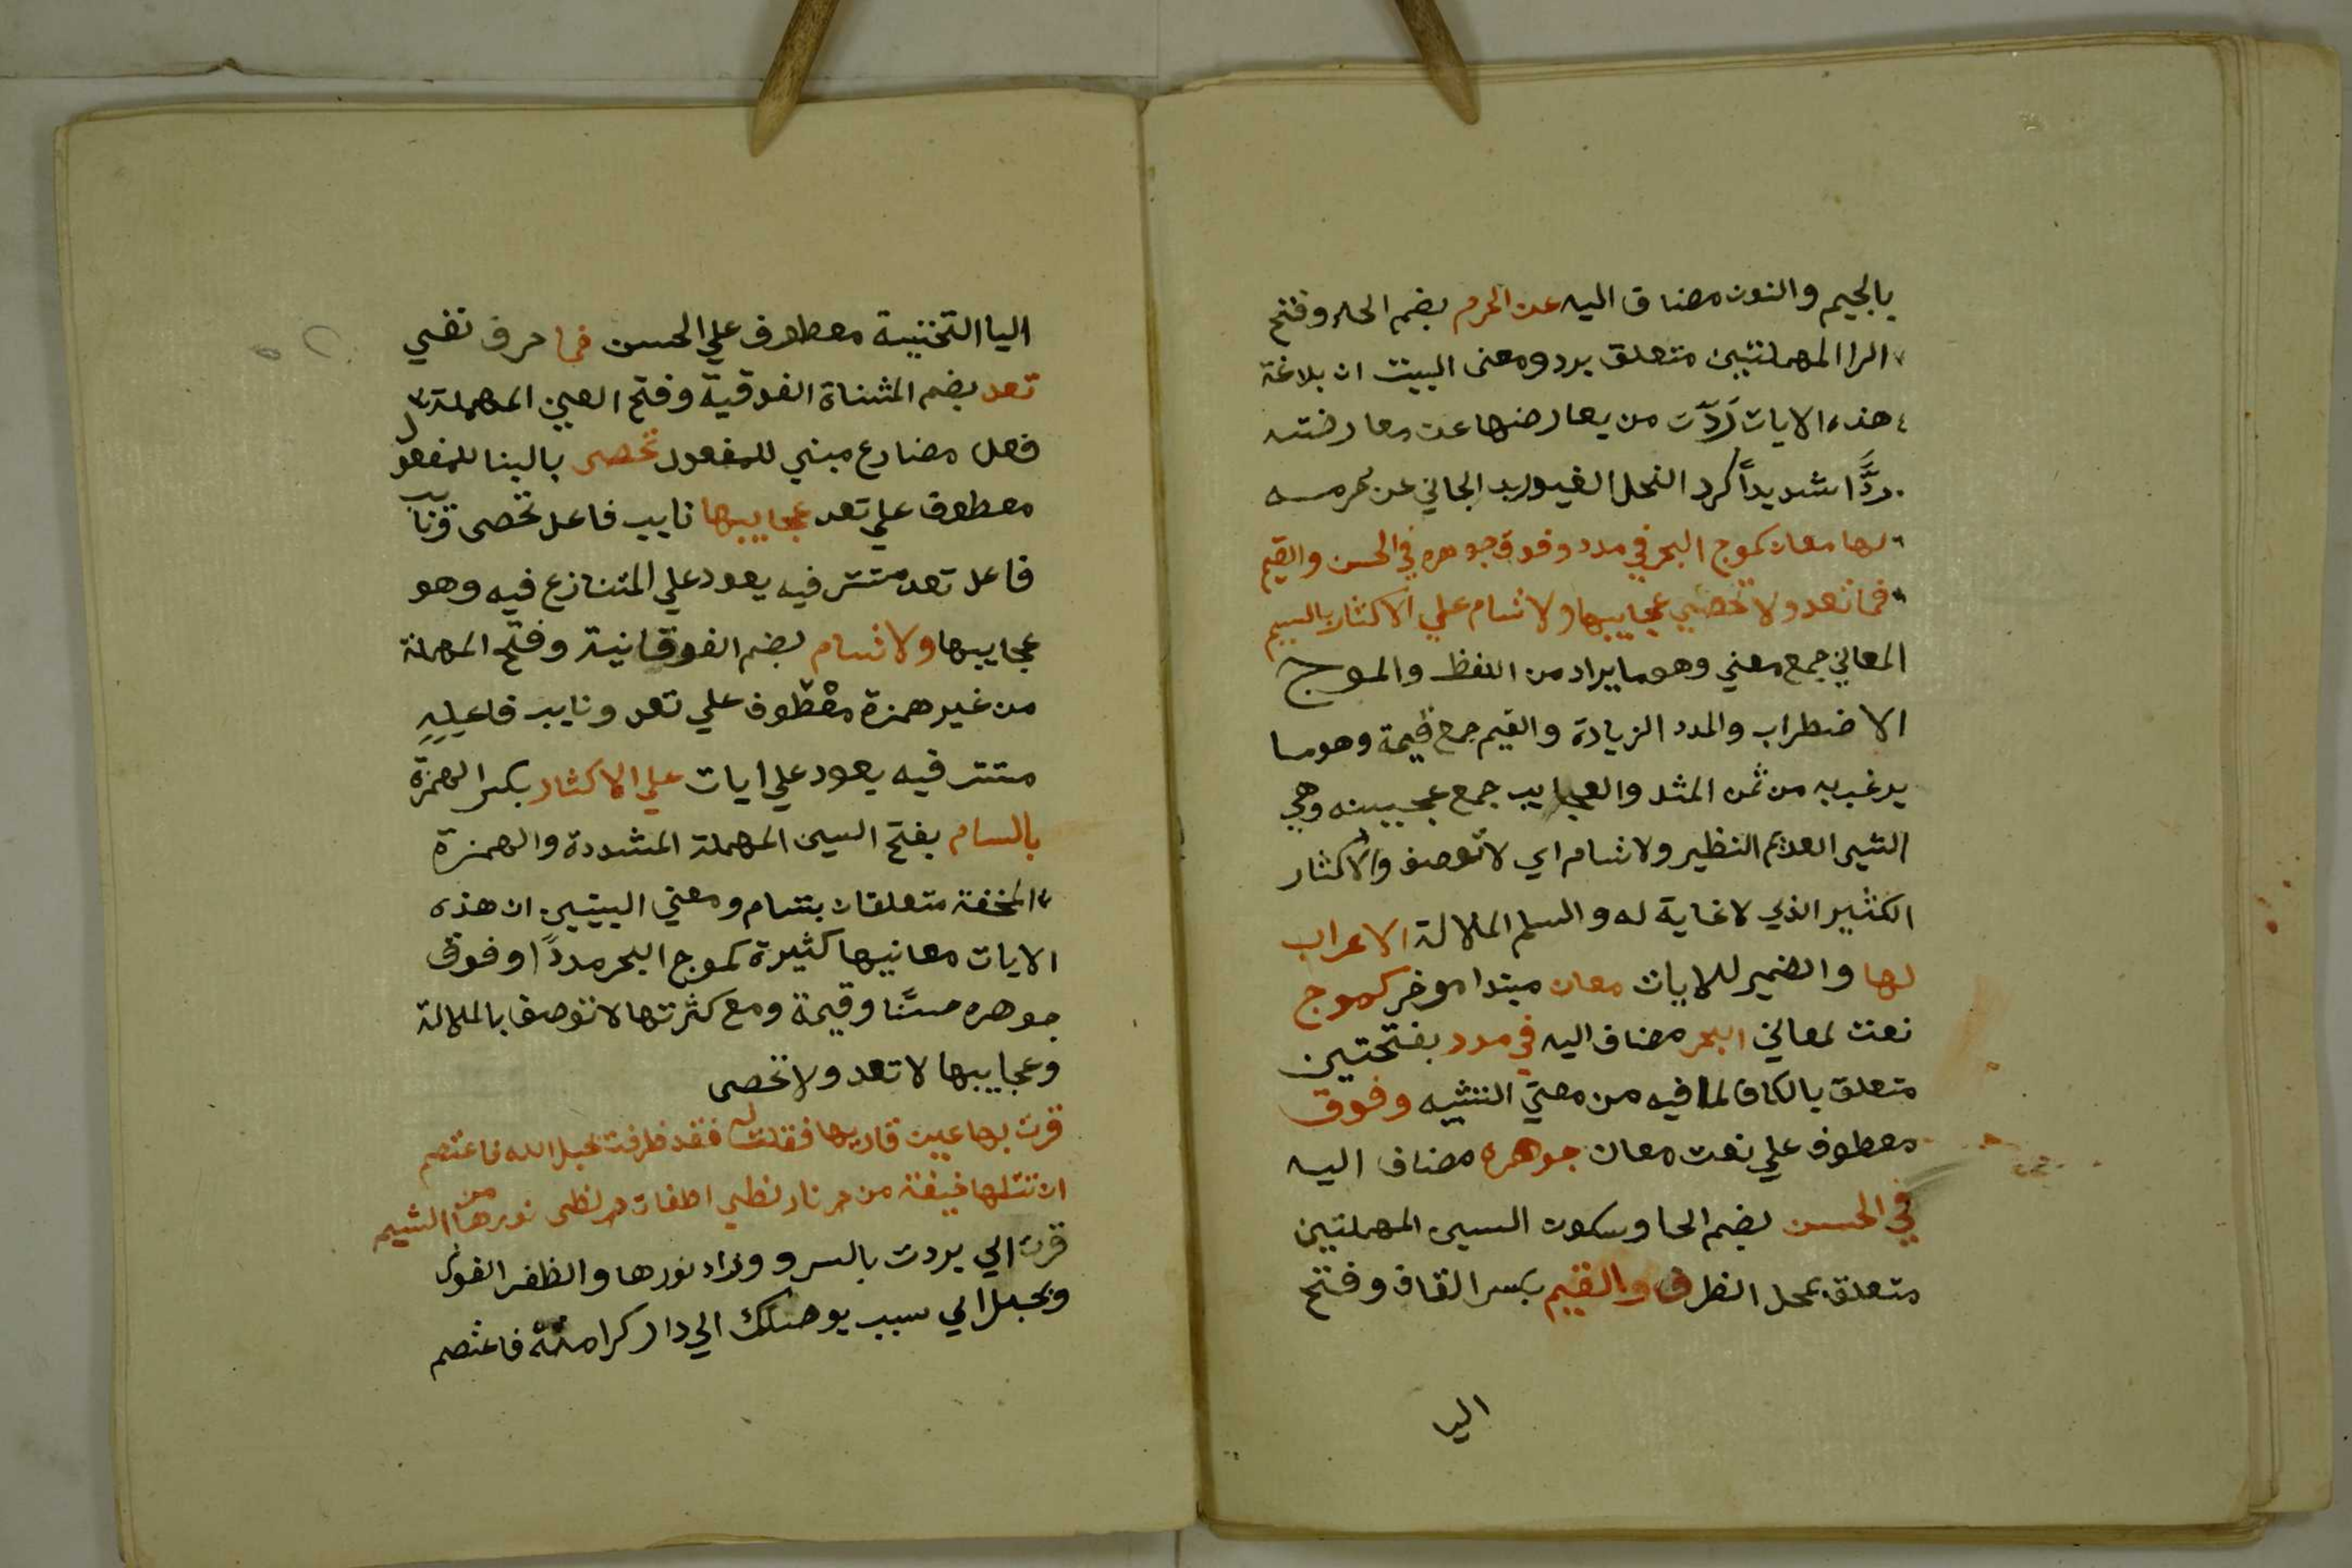 بالجيم والنون مضاف اليه عن الحرم بضم الحاء وفتح
الرا المهملتين متعلق برد ومعنى البيت ان بلاغة
هذه الايات رَدَّت من يعارضها عن معارضته
ردًّا شديداً كرد الفحل الغيور يد الجاني عن حرمه
لها معان كموج البحر في مدد وفوق جوهره في الحسن والقيم
فما تعد ولا تحصي عجايبها ولا تسام علي الاكثار بالسيم
المعاني جمع معني وهو ما يراد من اللفظ والموج
الاضطراب والمدد الزيادة والقيم جمع قيمة وهو ما
يرغب به من ثمن المثل والعجايب جمع عجيبه وهي
الشي العديم النظير ولا تسام اي لا توصف والاكثار
الكثير الذي لا غاية له والسام الملالة الاعراب
لها والضمير للايات معان مبتدا موخر كموج
نعت لمعاني البحر مضاف اليه في مدد بفتحتين
متعلق بالكاف لما فيه من معني التشبيه وفوق
معطوف علي نعت معان جوهره مضاف اليه
في الحسن بضم الحا وسكون السين المهملتين
متعلق بمحل الظرف والقيم بكسر القاف وفتح
اليا
اليا التحتيبة معطوف علي الحسن فما حرف نفي
تعد بضم المثناة الفوقية وفتح العين المهملة
فعل مضارع مبني للمفعول تحصى بالبنا للمفعول
معطوف علي تعد عجايبها نايب فاعل تحصى ونايب
فاعل تعد متتر فيه يعود علي المتنازع فيه وهو
عجايبها ولا تسام بضم الفوقانية وفتح المهملة
من غير همزة معطوف علي تعد ونايب فاعليه
متتر فيه يعود علي ايات علي الاكثار بكسر الهمزة
بالسام بفتح السين المهملة المشددة والهمزة
المخففة متعلقان بتسام ومعني البيتين ان هذه
الايات معانيها كثيرة كموج البحر مدداً وفوق
جوهره حسنًا وقيمة ومع كثرتها لا توصف بالملالة
وعجايبها لا تعد ولا تحصى
قرت بها عين قاريها فقلت له فقد ظرفت بحبل الله فاعتصم
ان تتلها خيفة من حر نار لظي اطفات حر لظى نورها من الشيم
قرت اي بردت بالسرو وزاد نورها والظفر الفوز
وبحبل اي سبب يوصلك الي دار كرامته فاعتصم